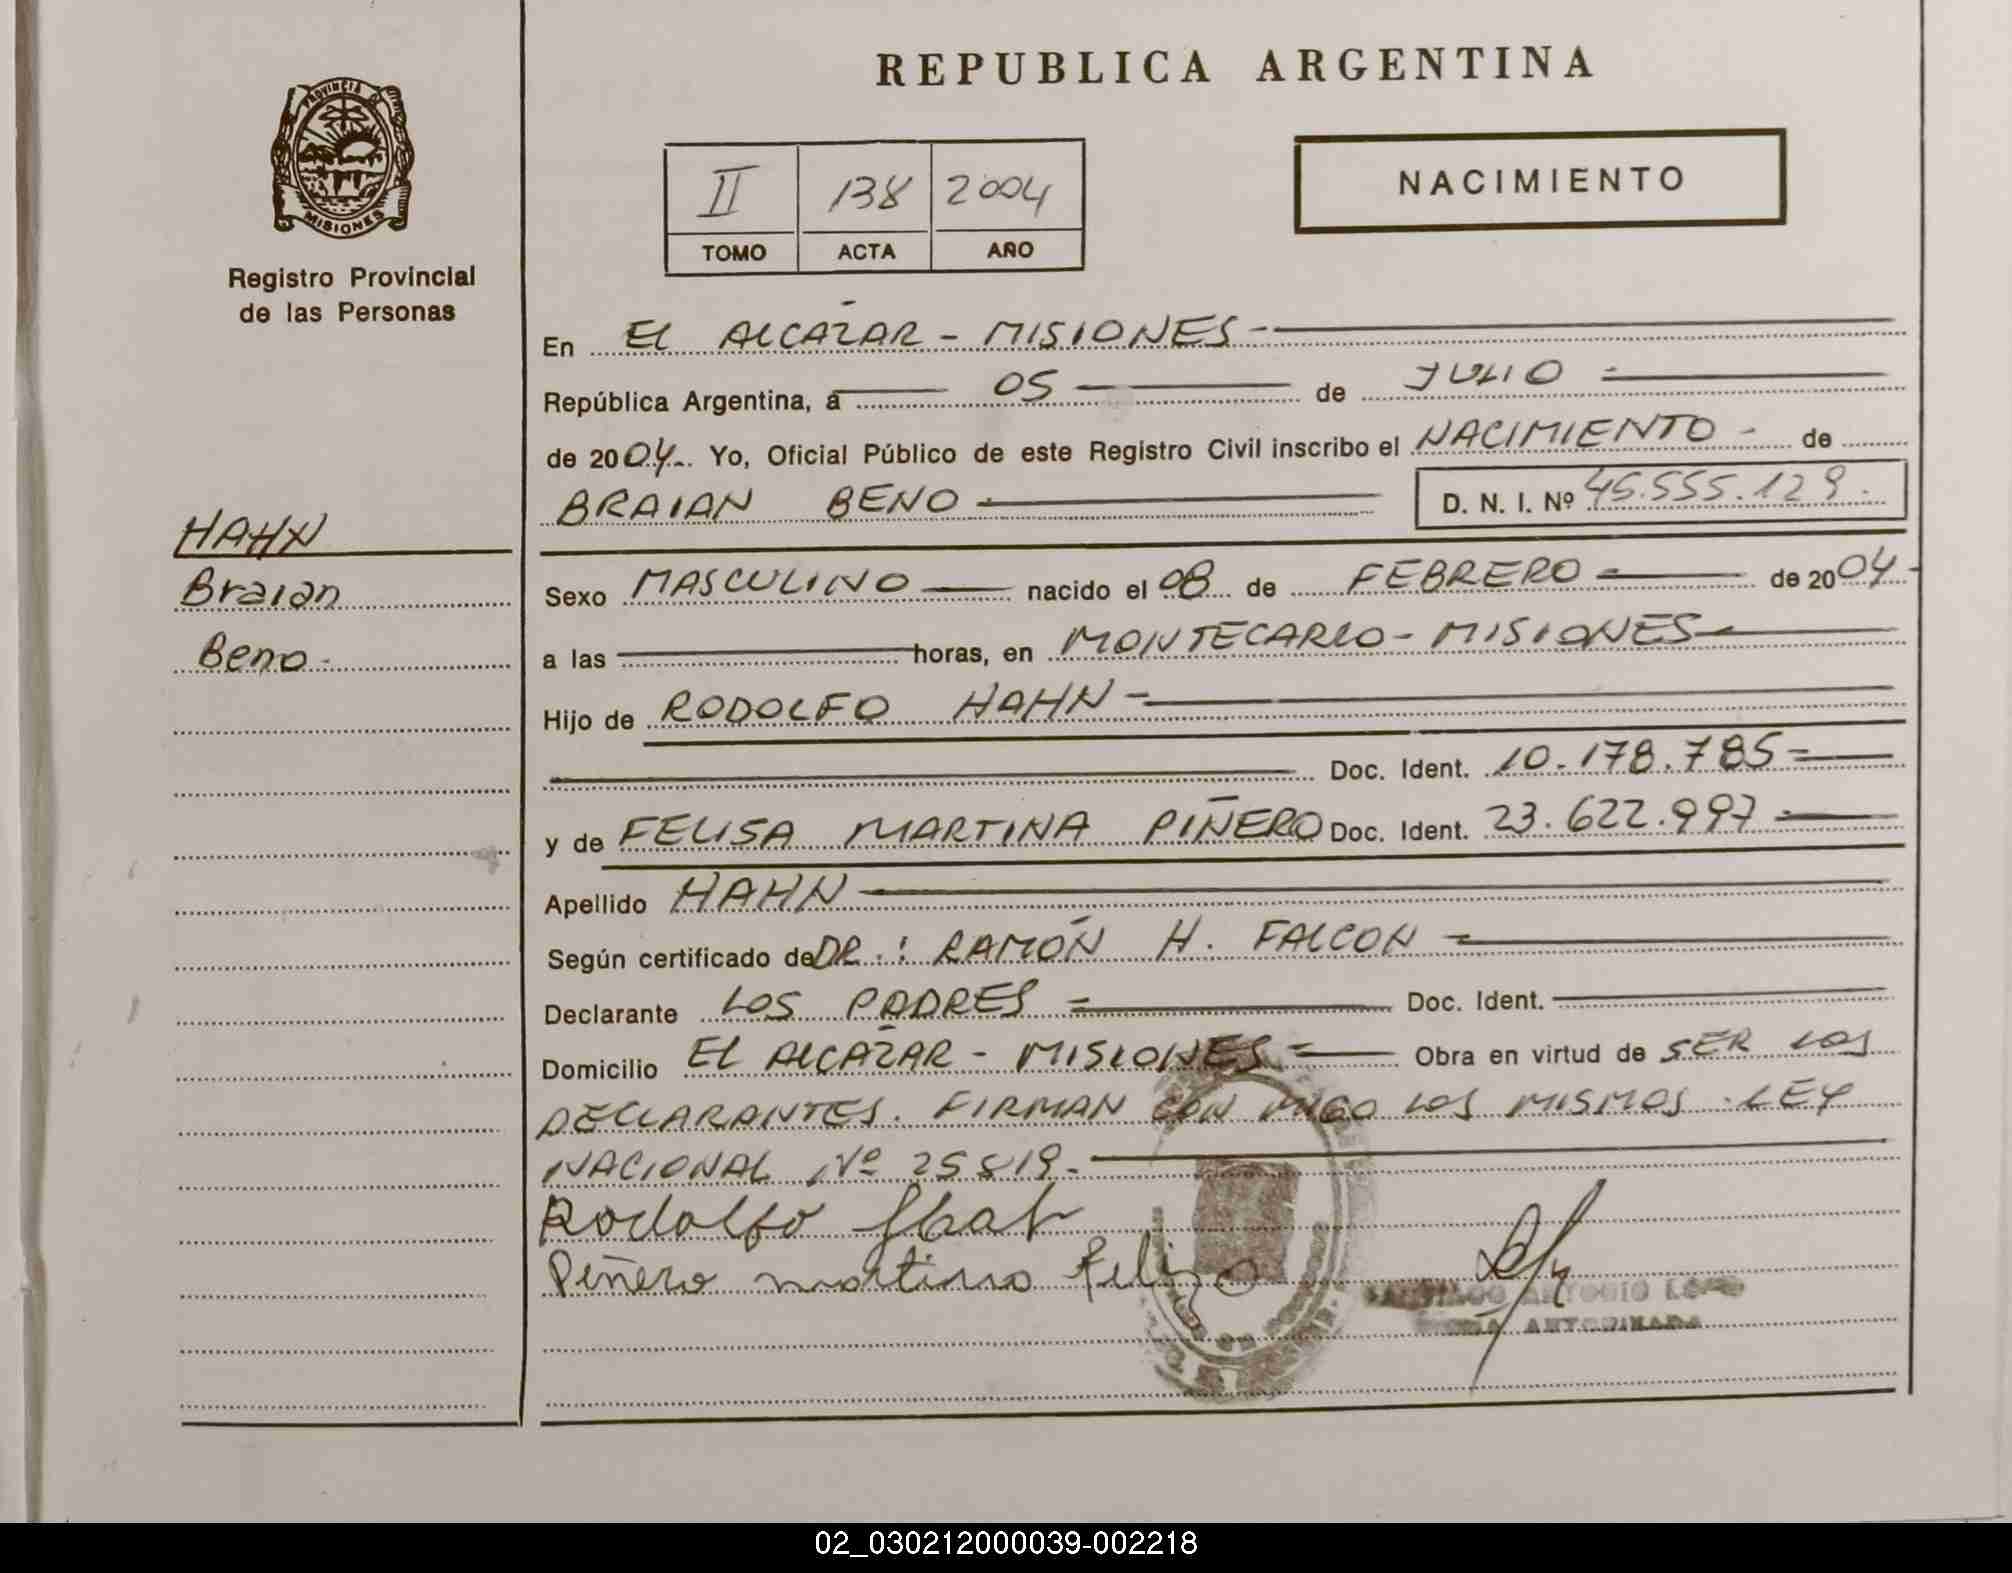 PROVINCIA DE
MISIONES
Registro Provincial
de las Personas
HAHN
Braian
Beno.
REPUBLICA ARGENTINA
II 138 2004
TOMO ACTA AÑO
NACIMIENTO
En EL ALCAZAR - MISIONES
República Argentina, a 05 de JULIO
de 2004. Yo, Oficial Público de este Registro Civil inscribo el NACIMIENTO de
BRAIAN BENO D. N. I. Nº 45.555.129.
Sexo MASCULINO nacido el 08 de FEBRERO de 2004
a las horas, en MONTECARLO - MISIONES
Hijo de RODOLFO HAHN
Doc. Ident. 10.178.785
y de FELISA MARTINA PIÑERO Doc. Ident. 23.622.997
Apellido HAHN
Según certificado de DR.: RAMÓN H. FALCON
Declarante LOS PADRES Doc. Ident.
Domicilio EL ALCAZAR - MISIONES Obra en virtud de SER LOS
DECLARANTES. FIRMAN CON MIGO LOS MISMOS. LEY
NACIONAL Nº 25819.
Rodolfo
Piñero martina feliza
ANTONIO
02_030212000039-002218